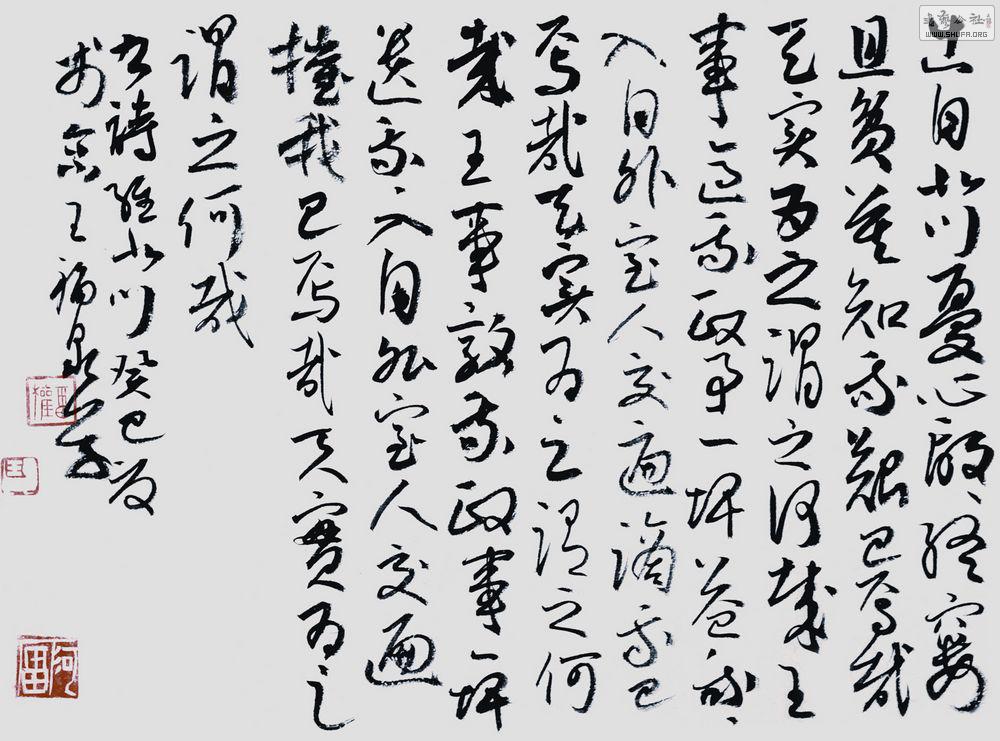 出自北门憂心殷〻終窶
且贫莫知我艱已焉哉
天实为之谓之何哉王
事适我政事一埤益我〻
入自外室人交遍谪我已
焉哉天实为之谓之何
哉王事敦我政事一埤
遗我入自外室人交遍
摧我已焉哉天實为之
谓之何哉
诗經北门癸巳夏
王福泉
WWW.SHUFA.ORG